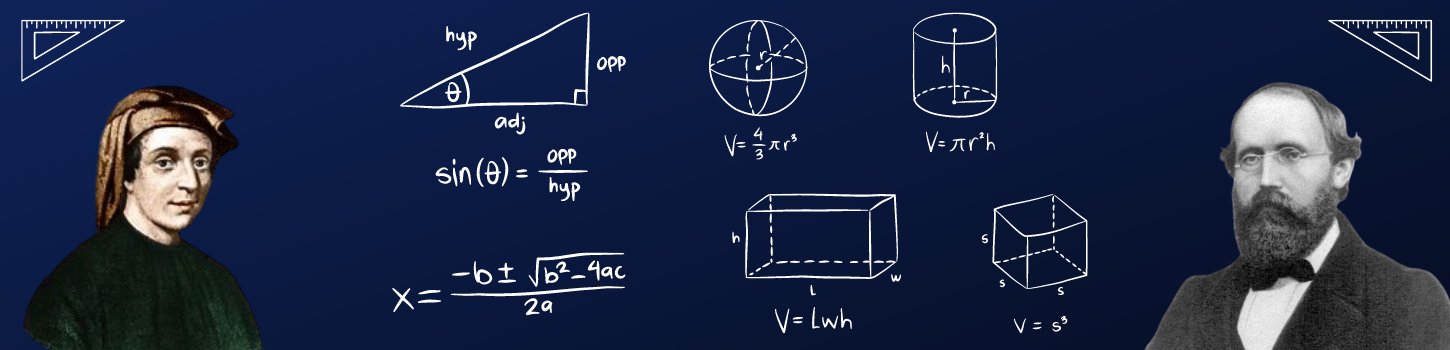 hyp
opp
θ
adj
sin(θ) = opp/hyp
x = -b ± √b²-4ac / 2a
r
V = 4/3 πr³
h
r
V = πr²h
h
w
L
V = Lwh
s
s
s
V = s³